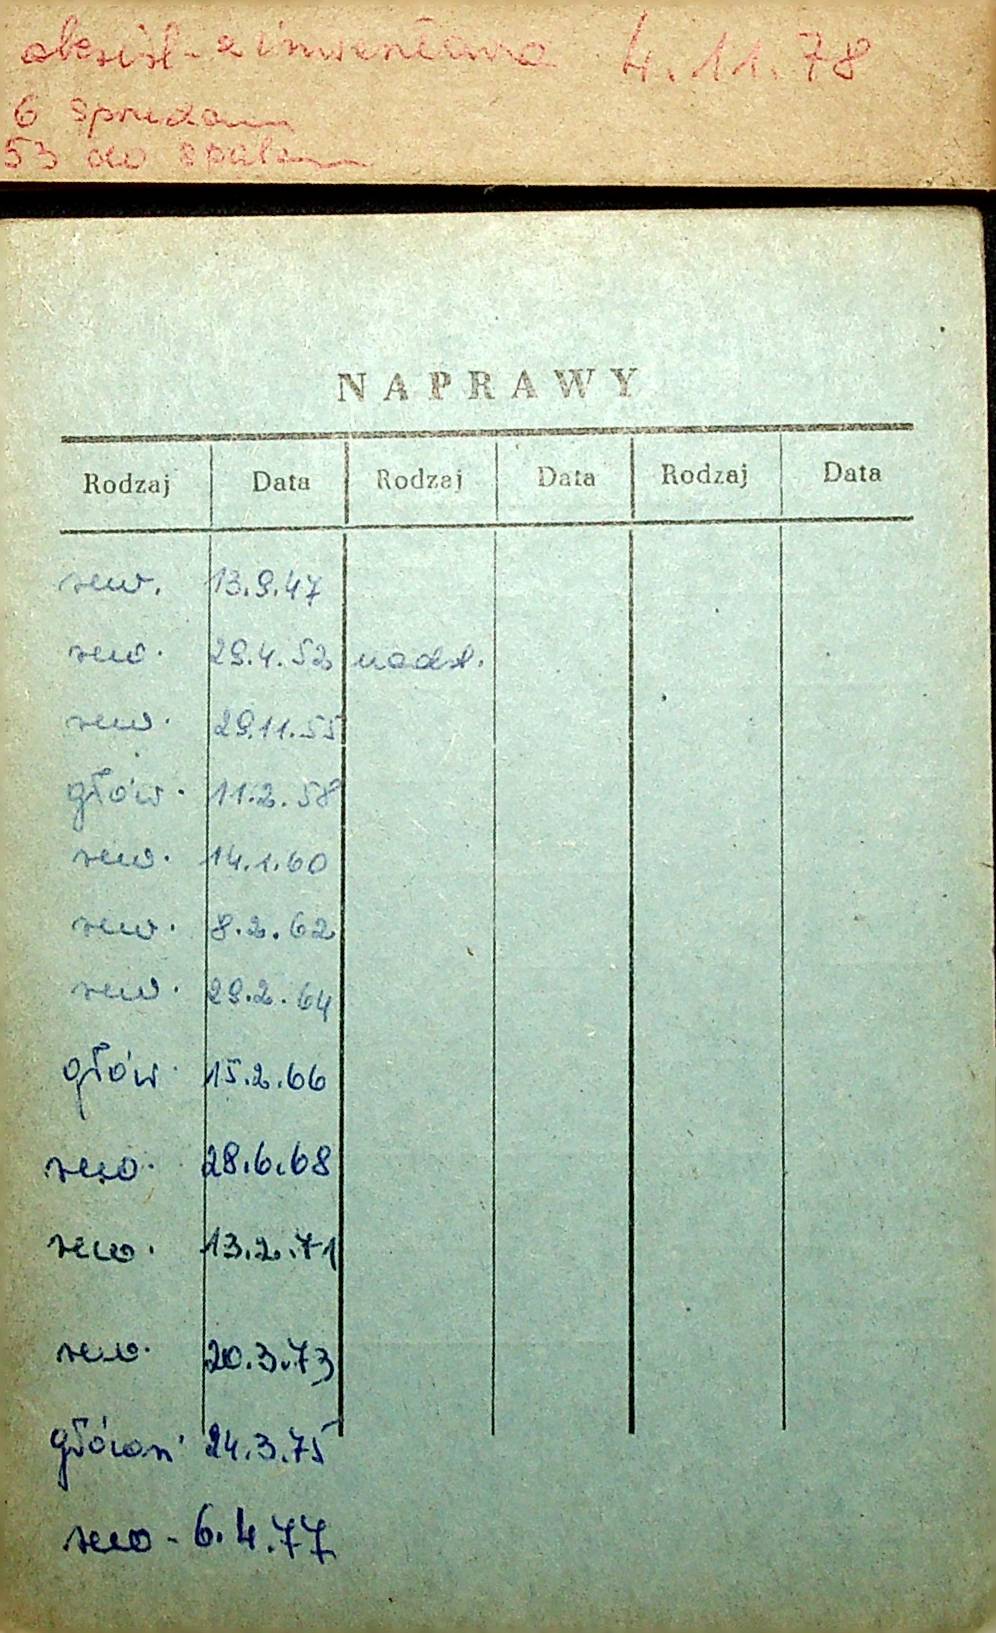 skreśl. z inwentarza 4.11.78
6 sprzedam
53 do spalen
NAPRAWY
Rodzaj Data Rodzaj Data Rodzaj Data
rew. 13.9.47
rew. 29.4.52 nadst.
rew. 29.11.55
głów. 11.2.58
rew. 14.1.60
rew. 8.2.62
rew. 29.2.64
głów. 15.2.66
rew. 28.6.68
rew. 13.2.71
rew. 20.3.73
główn. 24.3.75
rew - 6.4.77